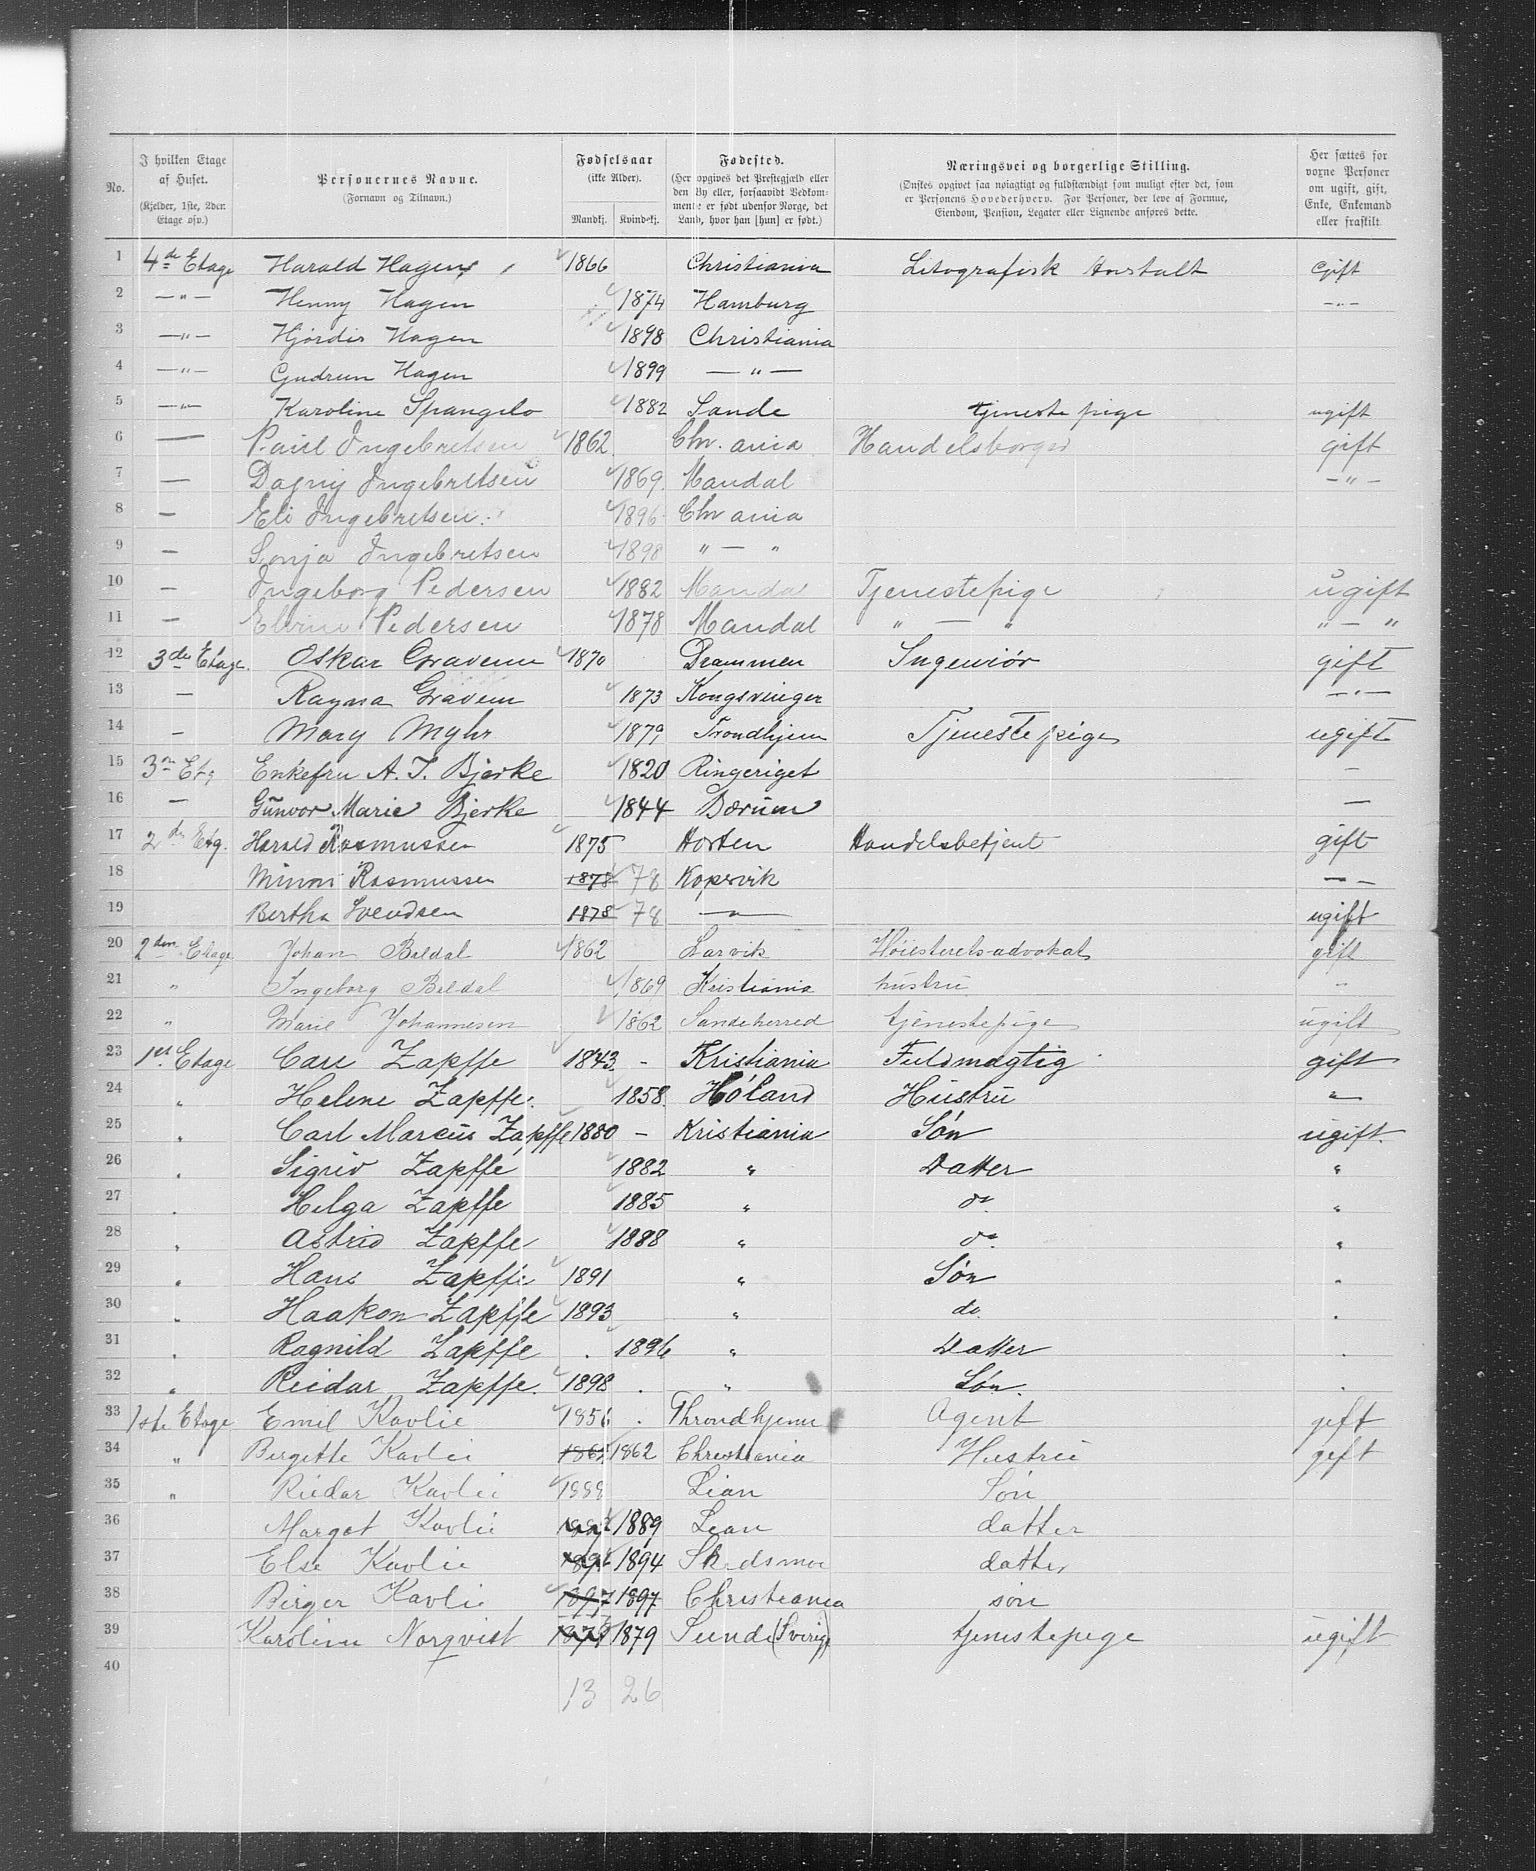 No.
I hvilken Etage af Huset. (Kjelder, 1ste, 2den Etage osv.)
Personernes Navne. (Fornavn og Tilnavn.)
Fødselsaar (ikke Alder). Mandkj. Kvindekj.
Fødested. (Her opgives det Prestegjæld eller den By eller, forsaavidt Vedkommende er født udenfor Norge, det Land, hvor han [hun] er født.)
Næringsvei og borgerlige Stilling. (Ønskes opgivet saa nøiagtigt og fuldstændigt som muligt efter det, som er Personens Hovederhverv. For Personer, der leve af Formue, Eiendom, Pension, Legater eller Lignende anføres dette.
Her sættes for vorne Personer om ugift, gift, Enke, Enkemand eller fraskilt
1 4de Etage Harald Hagen 1866 Christiania Litografisk Anstalt Gift
2 —"— Henny Hagen 1874 Hamburg —"—
3 —"— Hjørdis Hagen 1898 Christiania
4 —"— Gudrun Hagen 1899 —"—
5 —"— Karoline Spangelo 1882 Sande tjenestepige ugift
6 — Paul Ingebretsen 1862 Chr.ania Handelsborger gift
7 — Dagny Ingebretsen 1869 Mandal —"—
8 — Eli Ingebretsen 1896 Chr ania
9 — Sonja Ingebretsen 1898 " — "
10 — Ingeborg Pedersen 1882 Mandal Tjenestepige ugift
11 — Elvine Pedersen 1878 Mandal " — " " — "
12 3de Etage Oskar Gravem 1870 Drammen Ingeniør gift
13 — Ragna Gravem 1873 Kongsvinger —"—
14 — Mary Myhr 1879 Trondhjem Tjenestepige ugift
15 3n Etg Enkefru A. T. Bjerke 1820 Ringeriget —
16 — Gunvor Marie Bjerke 1844 Bærum —
17 2de Etg. Harald Rasmussen 1875 Horten Handelsbetjent gift
18 Minni Rasmussen 1878 78 Kopervik —"—
19 Bertha Svendsen 1878 78 —"— ugift
20 2den Etage Johan Bældal 1862 Larvik Høiesteretsadvokat gift
21 " Ingeborg Bældal 1869 Kristiania hustru "
22 " Marie Johannesen 1862 Sandeherred tjenestepige ugift
23 1ste Etage Carl Zapffe 1843 - Kristiania Fuldmægtig gift
24 " Helene Zapffe 1858 Høland Hustru "
25 " Carl Marcus Zapffe 1880 - Kristiania Søn ugift
26 " Sigrid Zapffe 1882 " Datter "
27 " Helga Zapffe 1885 " do "
28 " Astrid Zapffe 1888 " do "
29 " Hans Zapffe 1891 " Søn "
30 " Haakon Zapffe 1893 " do "
31 " Ragnild Zapffe 1896 " Datter "
32 " Reidar Zapffe 1898 " Søn "
33 1ste Etage Emil Kavlie 1856 Throndhjem Agent gift
34 " Birgette Kavlie 1862 1862 Christiania Hustru gift
35 " Reidar Kavlie 1888 Lian Søn
36 Margot Kavlie 1889 Lian datter
37 Else Kavlie 1894 Skedsmo datter
38 Birger Kavlie 1897 1897 Christiania søn
39 Karoline Norqvist 1879 1879 Sunde (Sverige) tjenestepige ugift
40
13 26